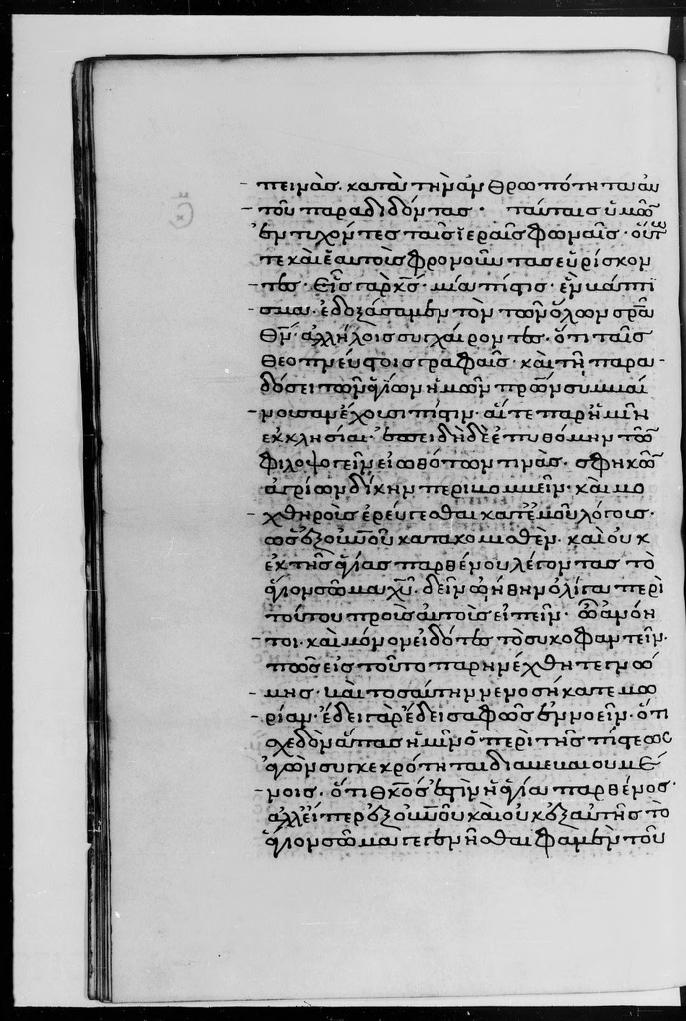 πεινὰς. κατὰ τὴν ἀνθρωπότητα αὐ
τοῦ παραδιδόντας· ταύταις ὑμῶν
ἐντυχόντες ταῖς ἱεραῖς φωναῖς· οὕτω
τε καὶ ἑαυτοὺς φρονοῦντας εὑρίσκον
τες· εἷς γὰρ κς· μία πίστις· ἓν βάπτι
σμα· ἐδοξάσαμεν τὸν τῶν ὅλων σρα
θν· ἀλλήλοις συγχαίροντες· ὅτι ταῖς
θεοπνεύστοις γραφαῖς· καὶ τῆ παρα
δόσει τῶν ἁγίων ἡμῶν πρων συμβαί
νουσαν ἔχουσι πίστιν· αἵτε παρ' ἡμῖν
ἐκκλησίαι· ἐπειδὴ δὲ ἐπυθόμην τῶν
φιλοψογεῖν εἰωθότων τινὰς. σφηκῶν
ἀγρίων δίκην περιβομβεῖν· καὶ μο
χθηροὺς ἐρεύγεσθαι κατ' ἐμοῦ λόγους·
ὡς ἐξ οὐνοῦ κατακομισθὲν· καὶ οὐκ
ἐκ τῆς ἁγίας παρθένου λέγοντας τὸ
ἅγιον σῶμα χυ· δεῖν ᾠήθην ὀλίγα περὶ
τούτου πρὸς αὐτοὺς εἰπεῖν· ὦ ἀνόη
τοι· καὶ μόνον εἰδότες τὸ συκοφαντεῖν·
πῶς εἰς τοῦτο παρηνέχθητε γνώ
μης· καὶ τοσαύτην νενοσήκατε μω
ρίαν· ἔδει γὰρ ἔδει σαφῶς ἐννοεῖν· ὅτι
σχεδὸν ἅπας ἡμῖν ὁ περὶ τῆς πίστεως
ἀγὼν συγκεκρότηται διαβεβαιουμέ
νοις· ὅτι θκος ἐστὶν ἡ ἁγία παρθένος·
ἀλλ' εἴπερ ἐξ οὐνοῦ καὶ οὐκ ἐξ αὐτῆς τὸ
ἅγιον σῶμα γεγενῆσθαι φαμὲν τοῦ